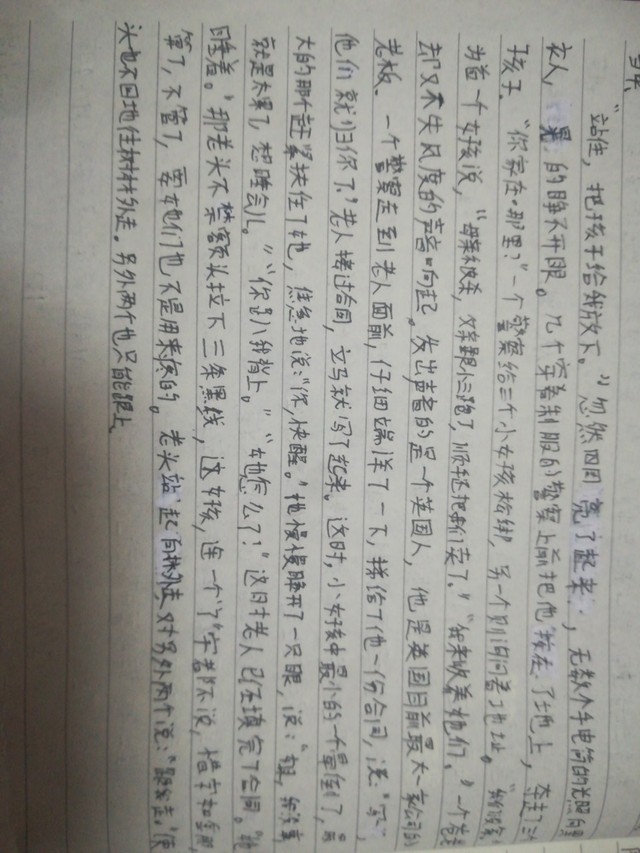 "站住，把孩子给我放下。"忽然四周亮了起来，无数个手电筒的光照的黑
衣人，晃的睁不开眼。几个穿着制服的警察上前把他按在了地上，夺走了三个
孩子。"你家在哪里？"一个警察给三个小女孩松绑，另一个则询问着地址。
为首一个女孩说，"母亲被杀，父亲跟人跑了，顺手还把我们卖了。""我来收养她们。"一个
却又不失风度的声音响起。发出声音的是一个英国人，他是英国目前最大一家公司的
老板、一个警察走到老人面前，仔细端详了一下，递给了他一份合同，说："写
他们就归你了。"老人接过合同，立马就写了起来。这时，小女孩中最小的一个晕倒了，
大的那个赶紧扶住了她，焦急地说："你，快醒。"她慢慢睁开了一只眼，说："姐，我没事
就是太累了，想睡会儿。""你趴我背上。""她怎么了？"这时老人已经填完了合同。
睡着。"那老头不禁额头拉下三条黑线，这女孩，连一个"了"字都不说，惜字如金啊，
算了，不管了，要她们也不是用来侍的。老头站起向林外走，对另外两个说："跟我走。"便
头也不回地往树林外走。另外两个也只能跟上